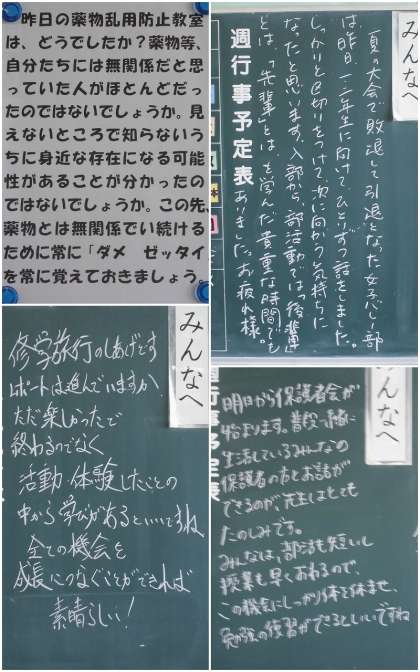 昨日の薬物乱用防止教室
は、どうでしたか？薬物等、
自分たちには無関係だと思
っていた人がほとんどだっ
たのではないでしょうか。見
えないところで知らないう
ちに身近な存在になる可能
性があることが分かったの
ではないでしょうか。この先、
薬物とは無関係でい続ける
ために常に「ダメ　ゼッタイ」
を常に覚えておきましょう。
みんなへ
夏の大会で敗退して引退となった女子バレー部
は、昨日、一、二年生に向けて、ひとりずつ話をしました。
しっかりと区切りをつけて次に向かう気持ちに
なったと思います。入部から、部活動では「後輩」
とは、「先輩」とは を学んだ貴重な時間でも
ありました。お疲れ様。
週行事予定表
みんなへ
修学旅行のしあげです
レポートは進んでいますか
ただ楽しかったで
終わるのでなく
活動・体験したことの
中から学びがあるといいですね
全ての機会を
成長につなぐことができれば
素晴らしい！
んなへ
行事予定表
明日から保護者会が
始まります。普段一緒に
生活しているみんなの
保護者の方とお話が
できるのが、先生はとても
たのしみです。
みんなは、部活も短いし
授業も早くおわるので、
この機会にしっかり体を休ませ、
勉強の復習ができるといいですね